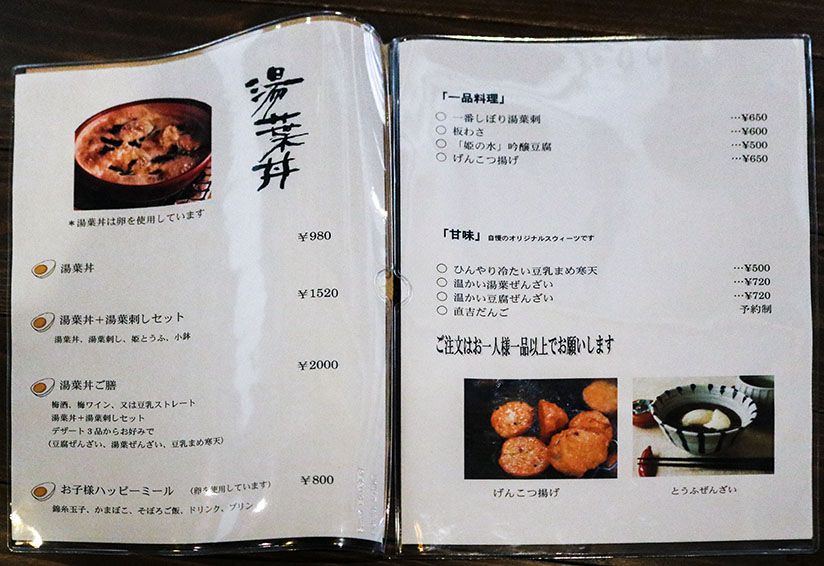 湯葉丼
＊湯葉丼は卵を使用しています
￥980
湯葉丼
￥1520
湯葉丼＋湯葉刺しセット
湯葉丼、湯葉刺し、姫とうふ、小鉢
￥2000
湯葉丼ご膳
梅酒、梅ワイン、又は豆乳ストレート
湯葉丼＋湯葉刺しセット
デザート３品からお好みで
（豆腐ぜんざい、湯葉ぜんざい、豆乳まめ寒天）
お子様ハッピーミール （卵を使用しています） ￥800
錦糸玉子、かまぼこ、そぼろご飯、ドリンク、プリン
「一品料理」
○ 一番しぼり湯葉刺 …¥650
○ 板わさ …¥600
○ 「姫の水」吟醸豆腐 …¥500
○ げんこつ揚げ …¥650
「甘味」 自慢のオリジナルスウィーツです
○ ひんやり冷たい豆乳まめ寒天 …¥500
○ 温かい湯葉ぜんざい …¥720
○ 温かい豆腐ぜんざい …¥720
○ 直吉だんご 予約制
ご注文はお一人様一品以上でお願いします
げんこつ揚げ
とうふぜんざい